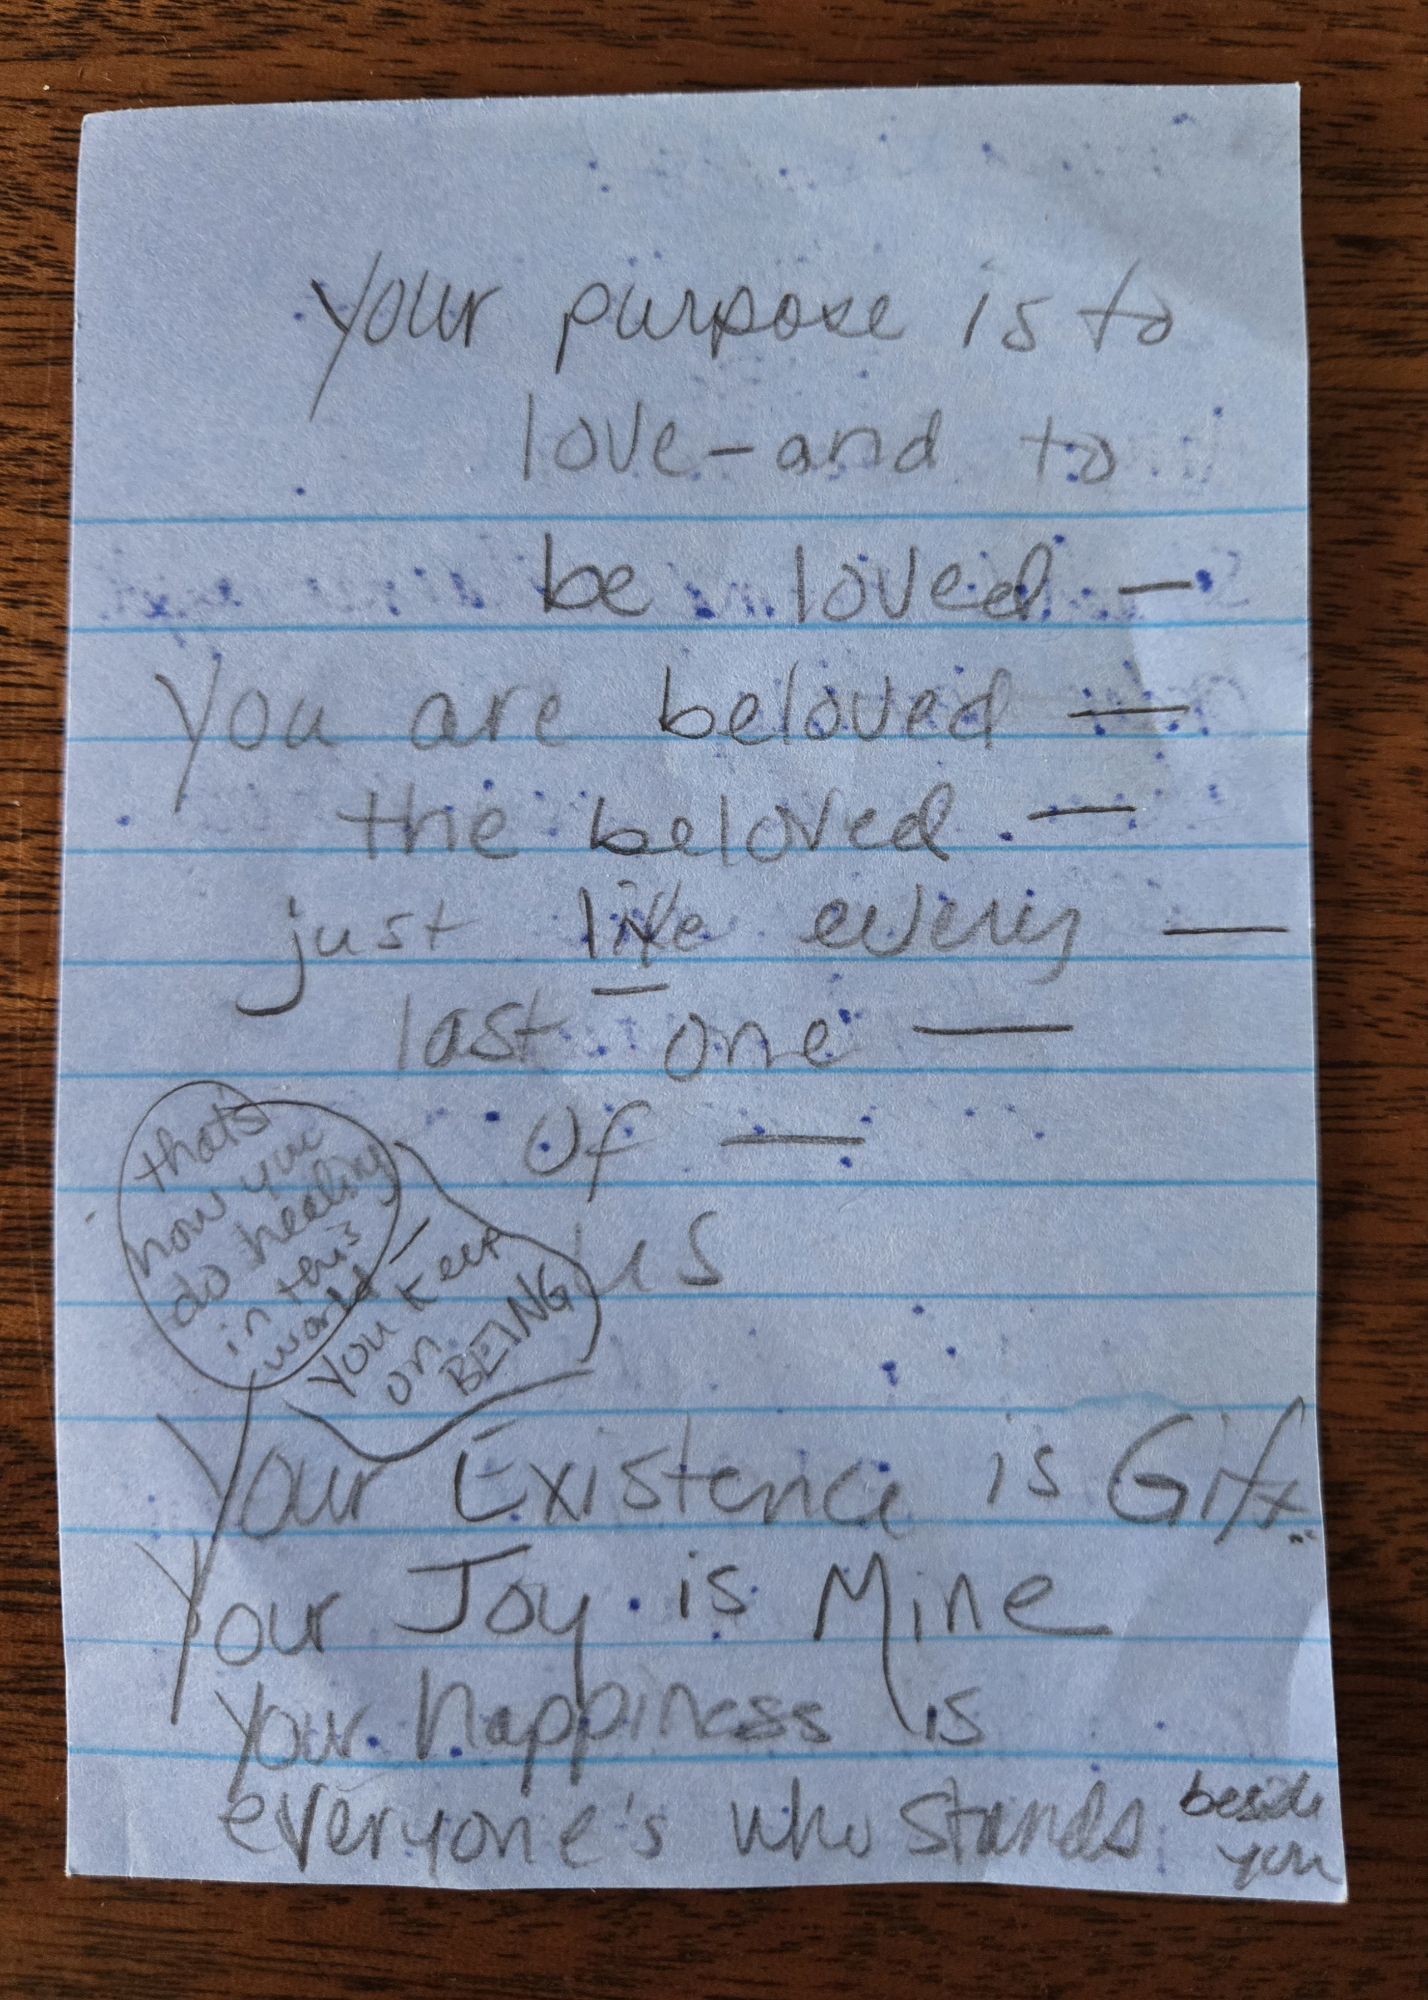 your purpose is to
love - and to
be loved —
you are beloved —
the beloved —
just like every —
last one —
of —
us
that's
how you
do healing
in this
world —
you keep
on
BEING
Your Existence is Gift
Your Joy is Mine
Your happiness is
everyone's who stands beside
you